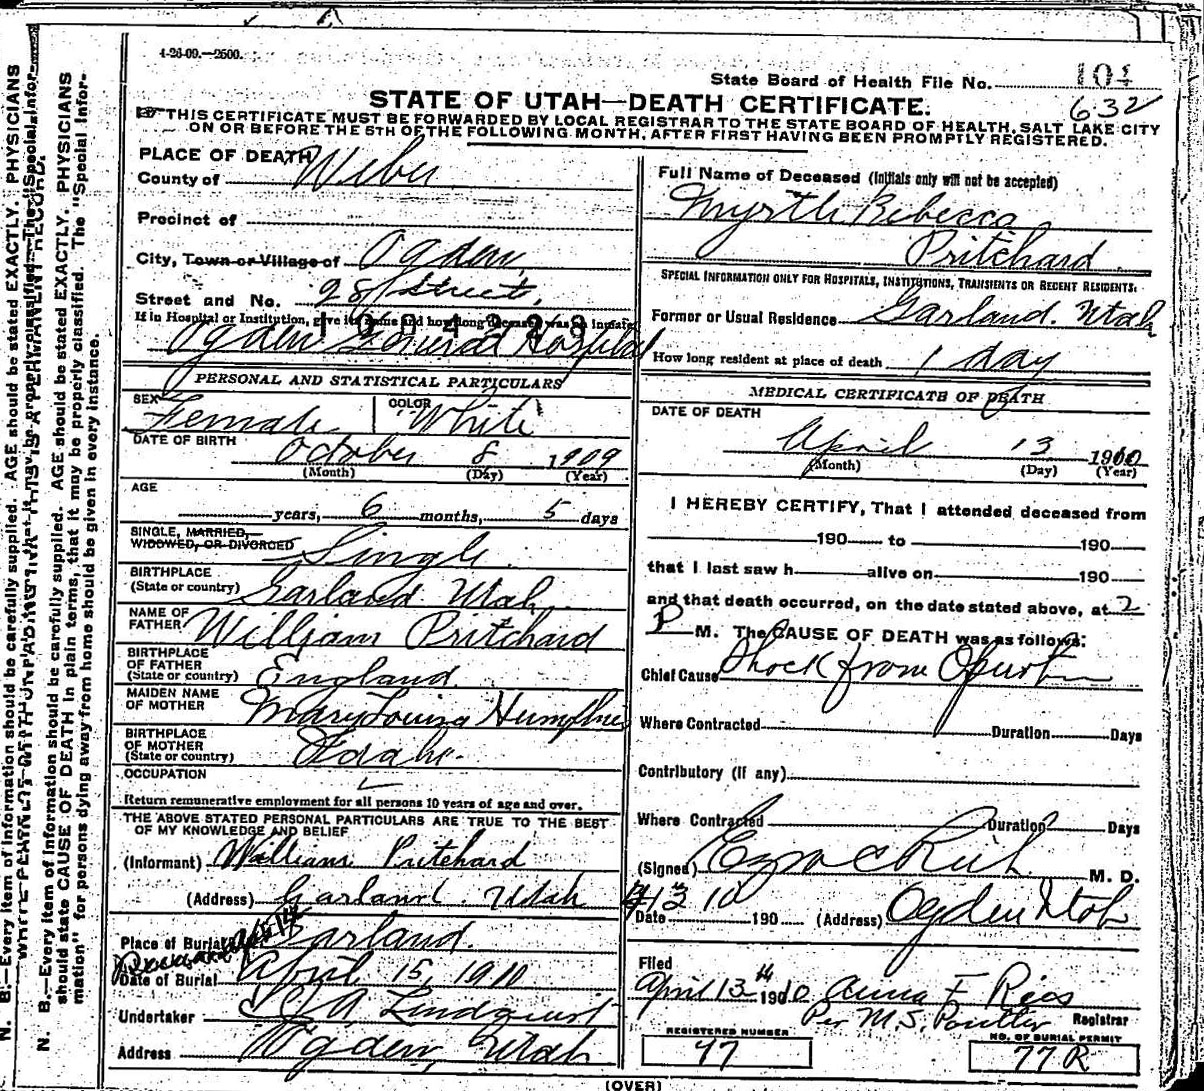 4-26-09.—2500.
State Board of Health File No. 104
632
STATE OF UTAH—DEATH CERTIFICATE.
THIS CERTIFICATE MUST BE FORWARDED BY LOCAL REGISTRAR TO THE STATE BOARD OF HEALTH, SALT LAKE CITY
ON OR BEFORE THE 5TH OF THE FOLLOWING MONTH, AFTER FIRST HAVING BEEN PROMPTLY REGISTERED.
PLACE OF DEATH
County of Weber
Precinct of
City, Town or Village of Ogden,
Street and No. 28th Street,
If in Hospital or Institution, give its name and how long deceased was an inmate
Ogden General Hospital
Full Name of Deceased (Initials only will not be accepted)
Myrtle Rebecca
Pritchard
SPECIAL INFORMATION ONLY FOR HOSPITALS, INSTITUTIONS, TRANSIENTS OR RECENT RESIDENTS:
Former or Usual Residence Garland. Utah
How long resident at place of death 1 day
PERSONAL AND STATISTICAL PARTICULARS
SEX Female
COLOR White
DATE OF BIRTH
October 8 1909
(Month) (Day) (Year)
AGE
years, 6 months, 5 days
SINGLE, MARRIED,
WIDOWED, OR DIVORCED Single
BIRTHPLACE
(State or country) Garland Utah
NAME OF
FATHER William Pritchard
BIRTHPLACE
OF FATHER
(State or country) England
MAIDEN NAME
OF MOTHER Mary Louisa
BIRTHPLACE
OF MOTHER
(State or country) Idaho.
OCCUPATION
Return remunerative employment for all persons 10 years of age and over.
THE ABOVE STATED PERSONAL PARTICULARS ARE TRUE TO THE BEST
OF MY KNOWLEDGE AND BELIEF
(Informant) William Pritchard
(Address) Garland. Utah
Place of Burial Garland.
Date of Burial April 15, 1910
Undertaker A. Lindquist
Address Ogden, Utah
MEDICAL CERTIFICATE OF DEATH
DATE OF DEATH
April 13 1910
(Month) (Day) (Year)
I HEREBY CERTIFY, That I attended deceased from
190 to 190
that I last saw h alive on 190
and that death occurred, on the date stated above, at 2
P M. The CAUSE OF DEATH was as follows:
Chief Cause Shock from
Where Contracted Duration Days
Contributory (if any)
Where Contracted Duration Days
(Signed) Ezra C Rich M. D.
Date 4 13 10 190 (Address) Ogden Utah
Filed
April 13th 1910 Anna F
Per M.S. Registrar
REGISTERED NUMBER
77
NO. OF BURIAL PERMIT
77 R
(OVER)
N. B.—Every item of information should be carefully supplied. AGE should be stated EXACTLY. PHYSICIANS
should state CAUSE OF DEATH in plain terms, that it may be properly classified. The "Special Infor-
mation" for persons dying away from home should be given in every instance.